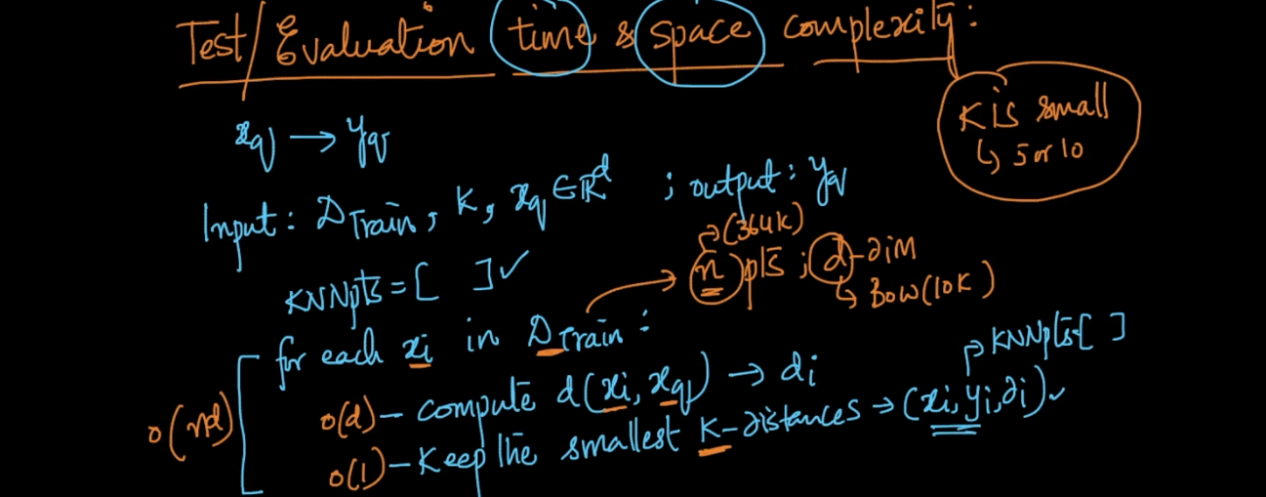 Test/Evaluation time & space complexity:
K is small
↳ 5 or 10
xq → yq
Input: DTrain, K, xq ∈ ℝd ; output: yq
(364K)
KNNpts = [ ] ✓
n pts ; d-dim
↳ BOW(10K)
for each xi in DTrain:
KNNpts[ ]
O(nd)
O(d) – compute d(xi, xq) → di
O(1) – Keep the smallest K-distances → (xi, yi, di) ✓